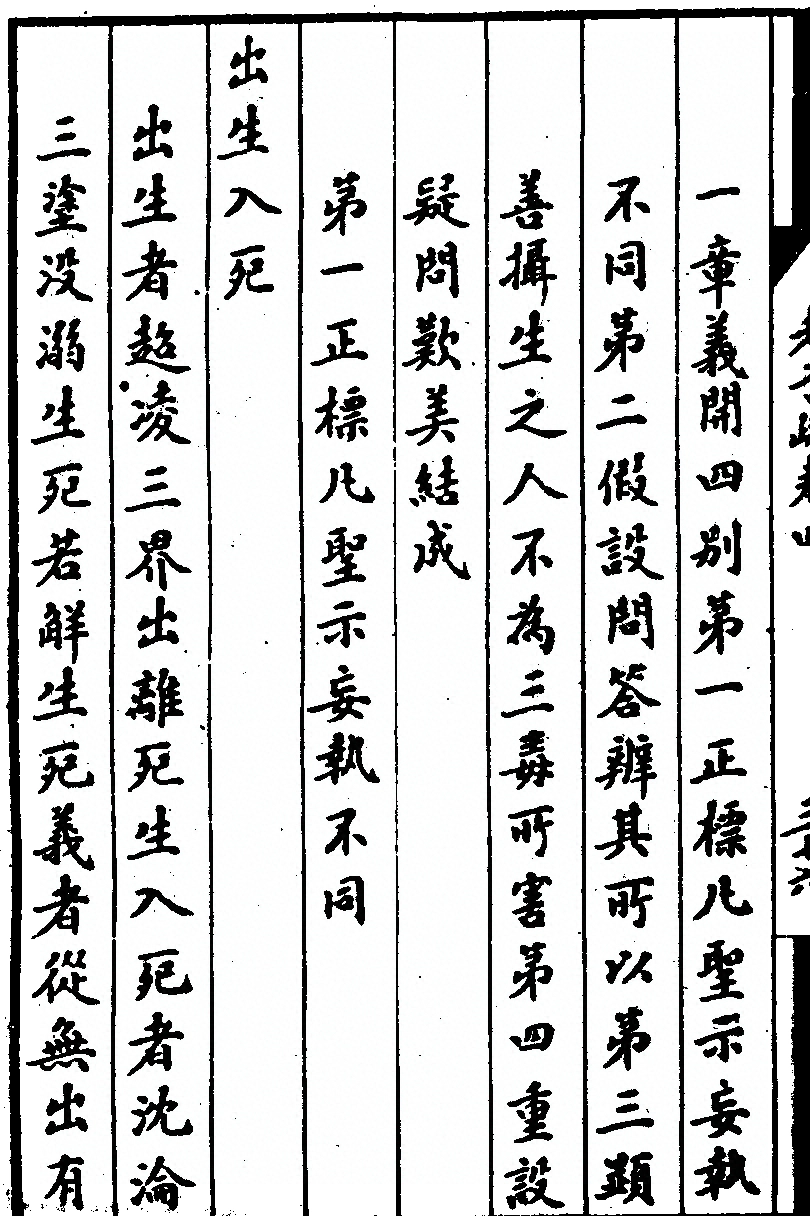 一章義開四別第一正標凡聖示妄執
不同第二假設問答辨其所以第三顯
善攝生之人不為三毒所害第四重設
疑問歎美結成
第一正標凡聖示妄執不同
出生入死
出生者超凌三界出離死生入死者沈淪
三塗没溺生死若解生死義者從無出有